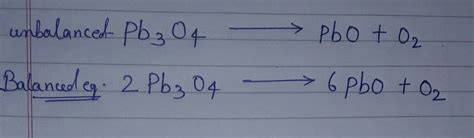 unbalanced Pb₃O₄ ⟶ PbO + O₂
Balanced eq. 2 Pb₃O₄ ⟶ 6 PbO + O₂